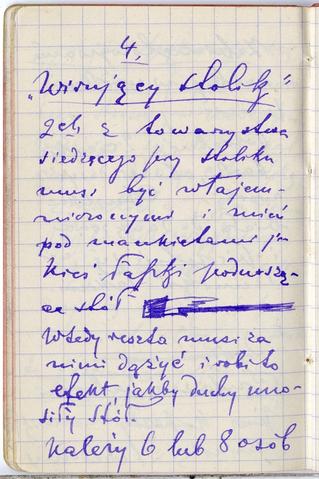 4.
"Wirujący stolik"
2ch z towarzystwa
siedzącego przy stoliku
musi być wtajem-
niczonymi i mieć
pod mankietami ja-
kieś łapki podnoszą-
ce stół
Wtedy reszta musi za
nimi dążyć i robi to
efekt, jakby duchy uno-
siły stół.
Należy 6 lub 8 osób